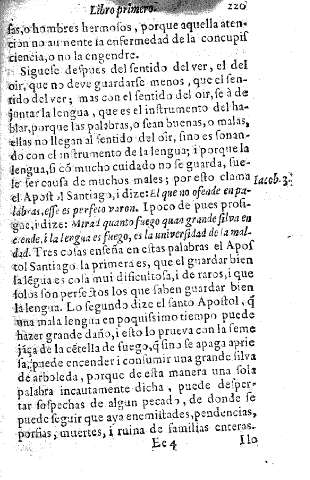 Libro primero. 220
sas, o hombres hermosos, porque aquella aten-
cion no aumente la enfermedad de la concupis
ciencia, o no la engendre.
Siguese despues del sentido del ver, el del
oir, que no deve guardarse menos, que el sen-
tido del ver; mas con el sentido del oir, se à de
juntar la lengua, que es el instrumento del ha-
blar, porque las palabras, o sean buenas, o malas,
ellas no llegan al sentido del oir, sino es sonan-
do con el instrumento de la lengua; i porque la
lengua, si cō mucho cuidado no se guarda, sue-
le ser causa de muchos males; por esto clama
el Apostol Santiago, i dize: El que no ofende en pa-
labras, esse es perfeto varon. I poco de pues prosi-
gue, i dize: Mirad quanto fuego quan grande silva en
ciende, i la lengua es fuego, es la universidad de la mal-
dad. Tres cosas enseña en estas palabras el Apos
tol Santiago. la primera es, que el guardar bien
la lēgua es cosa mui dificultosa, i de raros, i que
solos son perfectos los que saben guardar bien
la lengua. Lo segundo dize el santo Apostol, q̄
una mala lengua en poquissimo tiempo puede
hazer grande daño, i esto lo prueva con la seme
jāça de la cētella de fuego, q̄ sino se apaga aprie
sa, puede encender i consumir una grande silva
de arboleda, porque de esta manera una sola
palabra incautamente dicha, puede desper-
tar sospechas de algun pecado, de donde se
puede seguir que aya enemistades, pendencias,
porfias, muertes, i ruina de familias enteras.
Iacob. 3.
Ee 4 Ilo